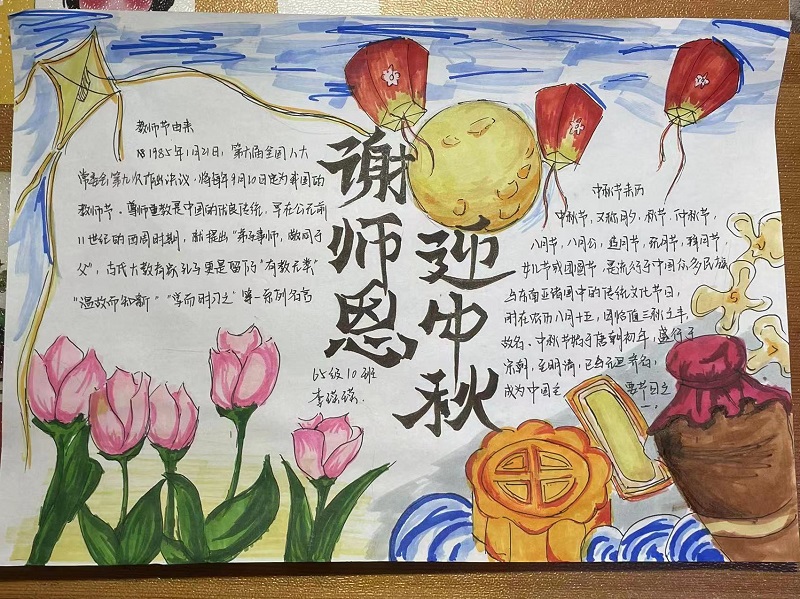 教师节由来
1985年1月21日，第六届全国人大
常委会第九次作出决议，将每年9月10日定为我国的
教师节。尊师重教是中国的优良传统，早在公元前
11世纪的西周时期，就提出“弟子事师，敬同于
父”，古代大教育家孔子更是留下“有教无类”
“温故而知新”“学而时习之”等一系列名言
谢师恩
65级10班
迎中秋
中秋节来历
中秋节，又称月夕、秋节、仲秋节，
八月节、八月会，追月节，玩月节，拜月节，
女儿节或团圆节，是流行于中国众多民族
与东南亚诸国中的传统文化节日，
时在农历八月十五，因恰值三秋之半，
故名。中秋节始于唐朝初年，盛行于
宋朝，至明清，已与元旦齐名，
成为中国主要节日之
一。